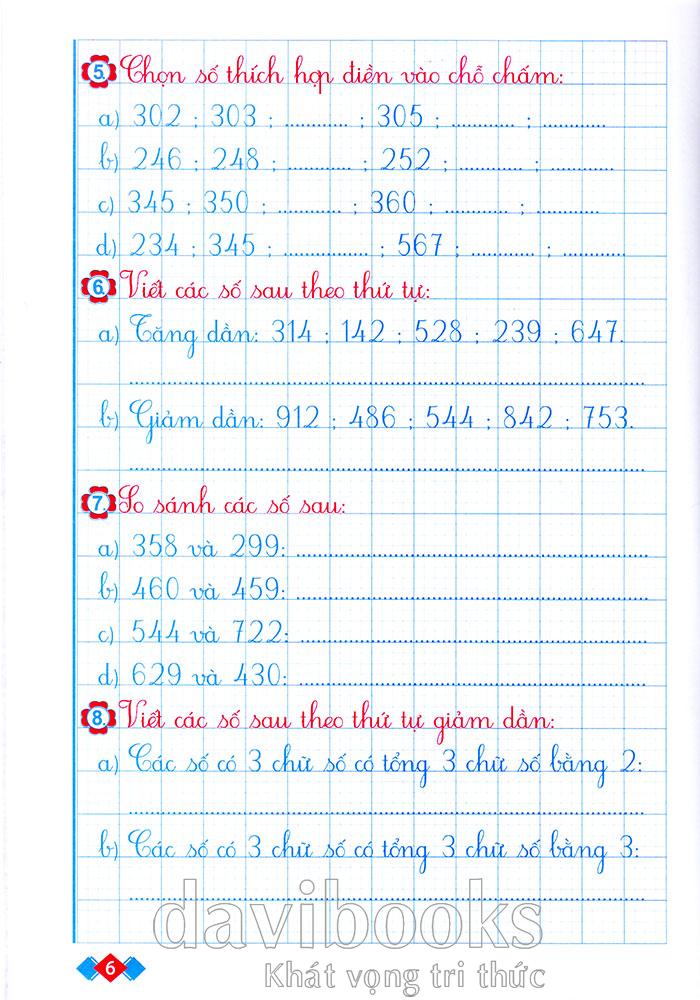 5. Chọn số thích hợp điền vào chỗ chấm:
a) 302 ; 303 ; ............ ; 305 ; ............ ; ............
b) 246 ; 248 ; ............ ; 252 ; ............ ; ............
c) 345 ; 350 ; ............ ; 360 ; ............ ; ............
d) 234 ; 345 ; ............... ; 567 ; ............ ; ............
6. Viết các số sau theo thứ tự:
a) Tăng dần: 314 ; 142 ; 528 ; 239 ; 647.
................................................................................
b) Giảm dần: 912 ; 486 ; 544 ; 842 ; 753.
................................................................................
7. So sánh các số sau:
a) 358 và 299: ............................................................
b) 460 và 459: ............................................................
c) 544 và 722: ............................................................
d) 629 và 430: ............................................................
8. Viết các số sau theo thứ tự giảm dần:
a) Các số có 3 chữ số có tổng 3 chữ số bằng 2:
................................................................................
b) Các số có 3 chữ số có tổng 3 chữ số bằng 3:
................................................................................
davibooks
Khát vọng tri thức
6